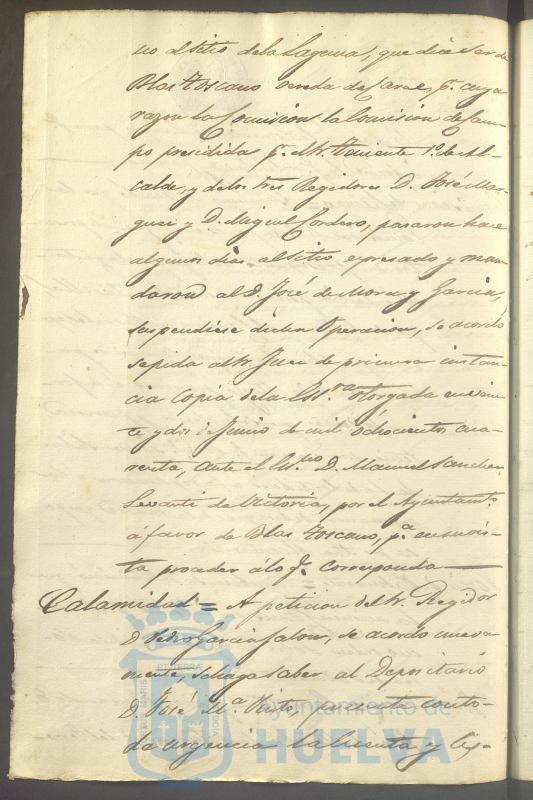 no al sitio de la Laguna, que dice ser de
Blas Toscano vereda de Carne, p.r cuya
razon la Comision la Comision de Cam-
po presidida p.r el Sr. Teniente 1.º de Al-
calde, y de los tres Regidores D. José Mar-
quez y D. Miguel Cordero, pasaron hace
algunos dias al sitio espresado y man-
daron al D. José de Mora y Garcia,
suspendiese dicha Operacion, se acordó
se pida al Sr. Juez de primera instan-
cia Copia de la Esc.ra otorgada en vein-
te y dos de Junio de mil ochocientos cua-
renta, ante el Es.no D. Manuel Sanchez
de Victoria, por el Ayuntam.to
á favor de Blas Toscano, p.a en su vis-
ta proceder á lo q.e corresponda
Calamidad = A peticion del Sr. Regidor
D. Pedro Garcia Jalon, se acordo nueva-
mente, se haga saber al Depositario
D. José M.a presente con to-
da urgencia la Cuenta y Ex-
MARIS
ET TERRÆ
CUSTODIA
Ayuntamiento de
HUELVA